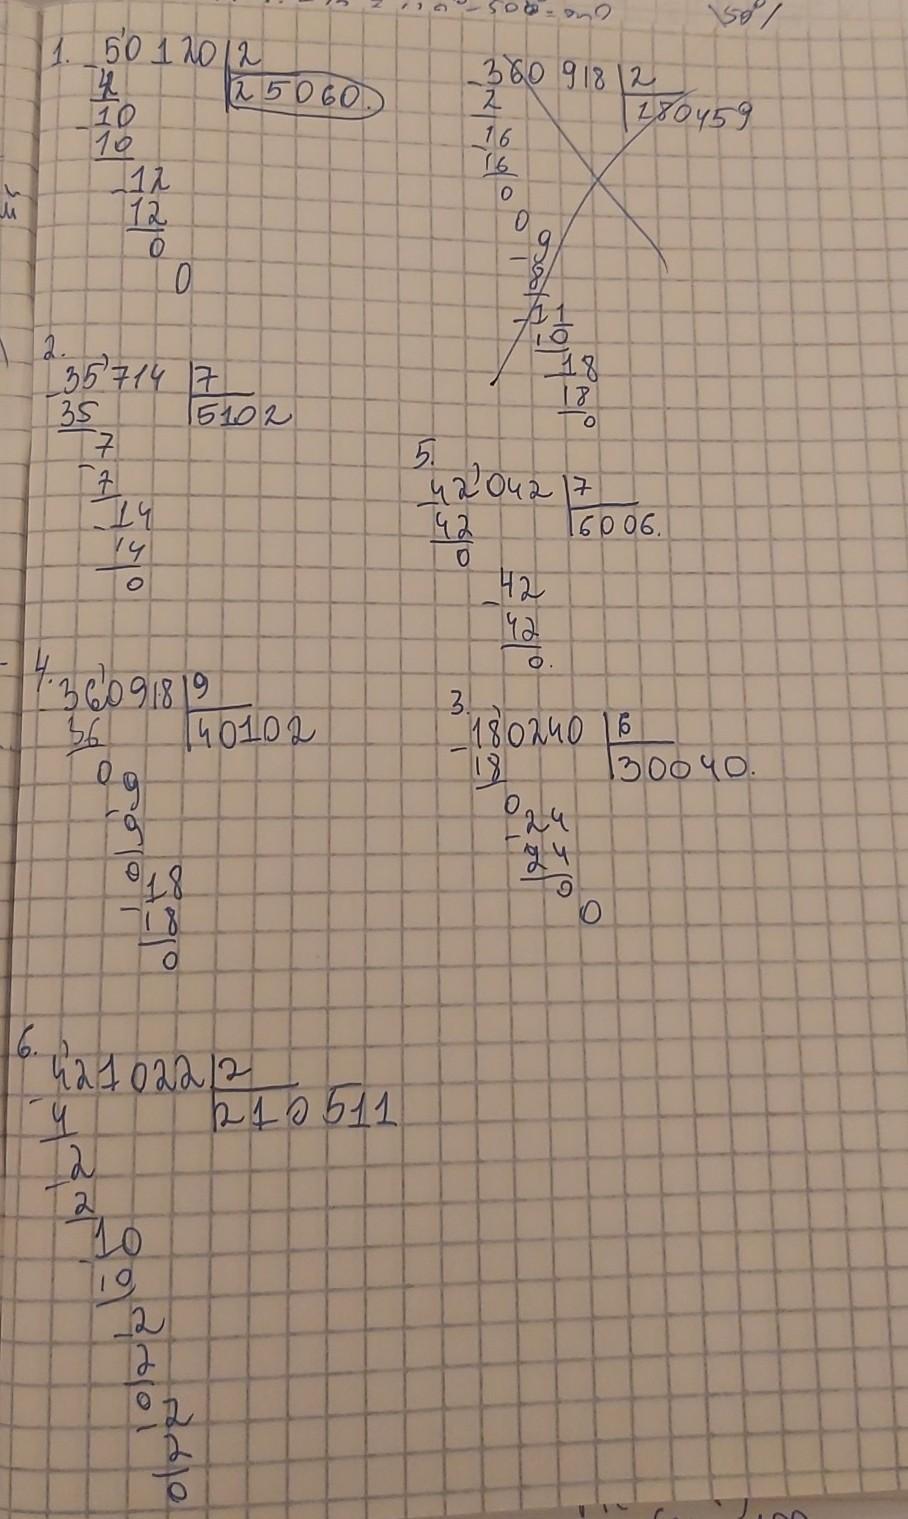 1. 50120 | 2
25060.
4
10
10
12
12
0
0
360918 | 2
180459
2
16
16
0
0
9
8
11
10
18
18
0
2.
35714 | 7
35 5102
7
7
14
14
0
5.
42042 | 7
42 6006.
0
42
42
0.
4.
360918 | 9
36 40102
0
9
9
0
18
18
0
3.
180240 | 6
18 30040.
0
24
24
0
0
6.
421022 | 2
4 210511
2
2
10
10
2
2
0
2
2
0